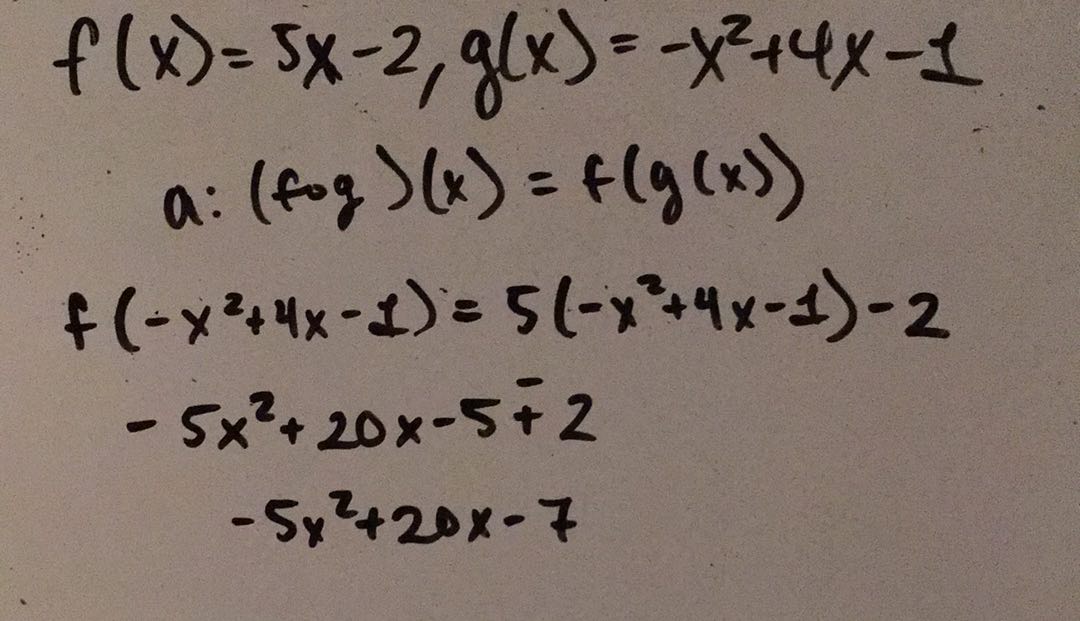 f(x)= 5x-2, g(x)= -x²+4x-1
a: (fog)(x) = f(g(x))
f(-x²+4x-1)= 5(-x²+4x-1)-2
- 5x²+20x-5∓2
-5x²+20x-7